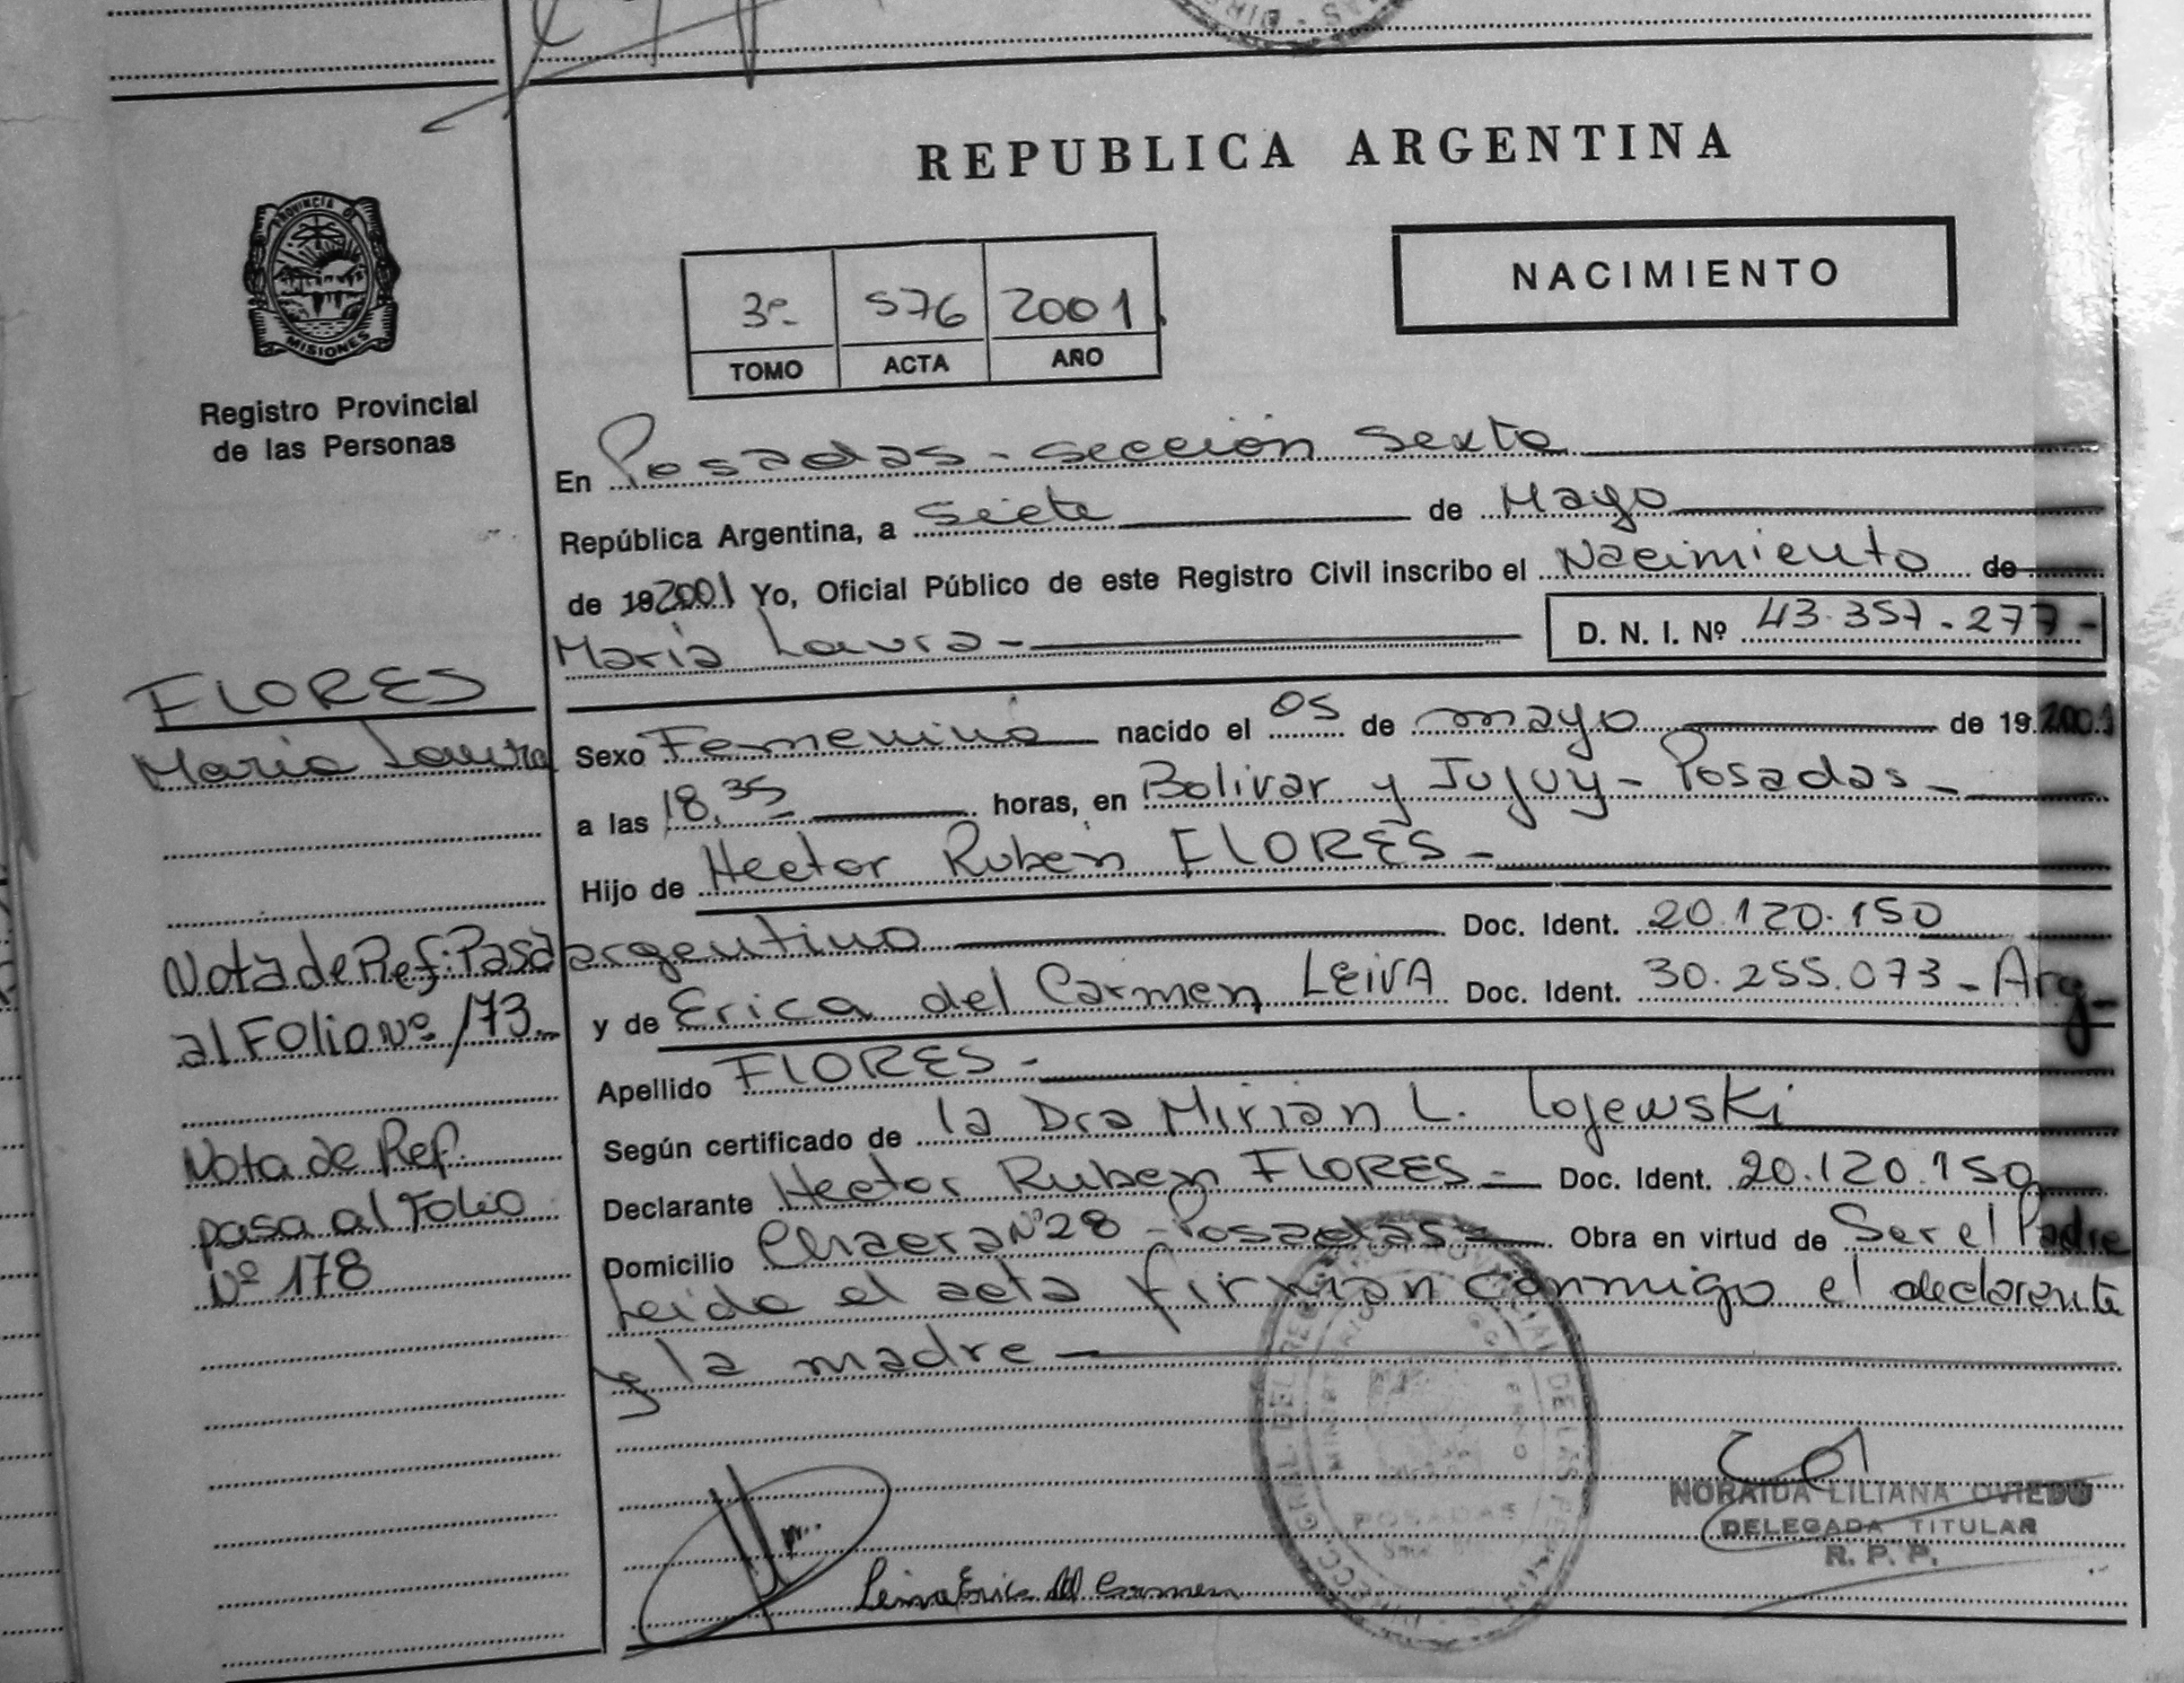 REPUBLICA ARGENTINA
NACIMIENTO
PROVINCIA DE
MISIONES
Registro Provincial
de las Personas
3º- 576 2001
TOMO ACTA AÑO
En Posadas - sección sexta
República Argentina, a siete de Mayo
de 192001 Yo, Oficial Público de este Registro Civil inscribo el Nacimiento de
Maria Laura - D. N. I. Nº 43.357.277-
FLORES
Maria Laura
Sexo Femenino nacido el 05 de mayo de 19 2001
a las 18,35 horas, en Bolivar y Jujuy - Posadas -
Hijo de Hector Ruben FLORES -
argentino Doc. Ident. 20.120.150
y de Erica del Carmen LEIVA Doc. Ident. 30.255.073 - Arg -
Apellido FLORES -
Según certificado de la Dra Mirian L. Lojewski
Declarante Hector Ruben FLORES - Doc. Ident. 20.120.150
Domicilio Chacra Nº 28 - Posadas - Obra en virtud de Ser el Padre
Leida el acta firman conmigo el declarante
y la madre -
Nota de Ref: Pasa
al Folio Nº 173.-
Nota de Ref.
pasa al Folio
Nº 178
Leiva Erica del Carmen
POSADAS
NORAIDA LILIANA OVIEDO
DELEGADA TITULAR
R. P. P.